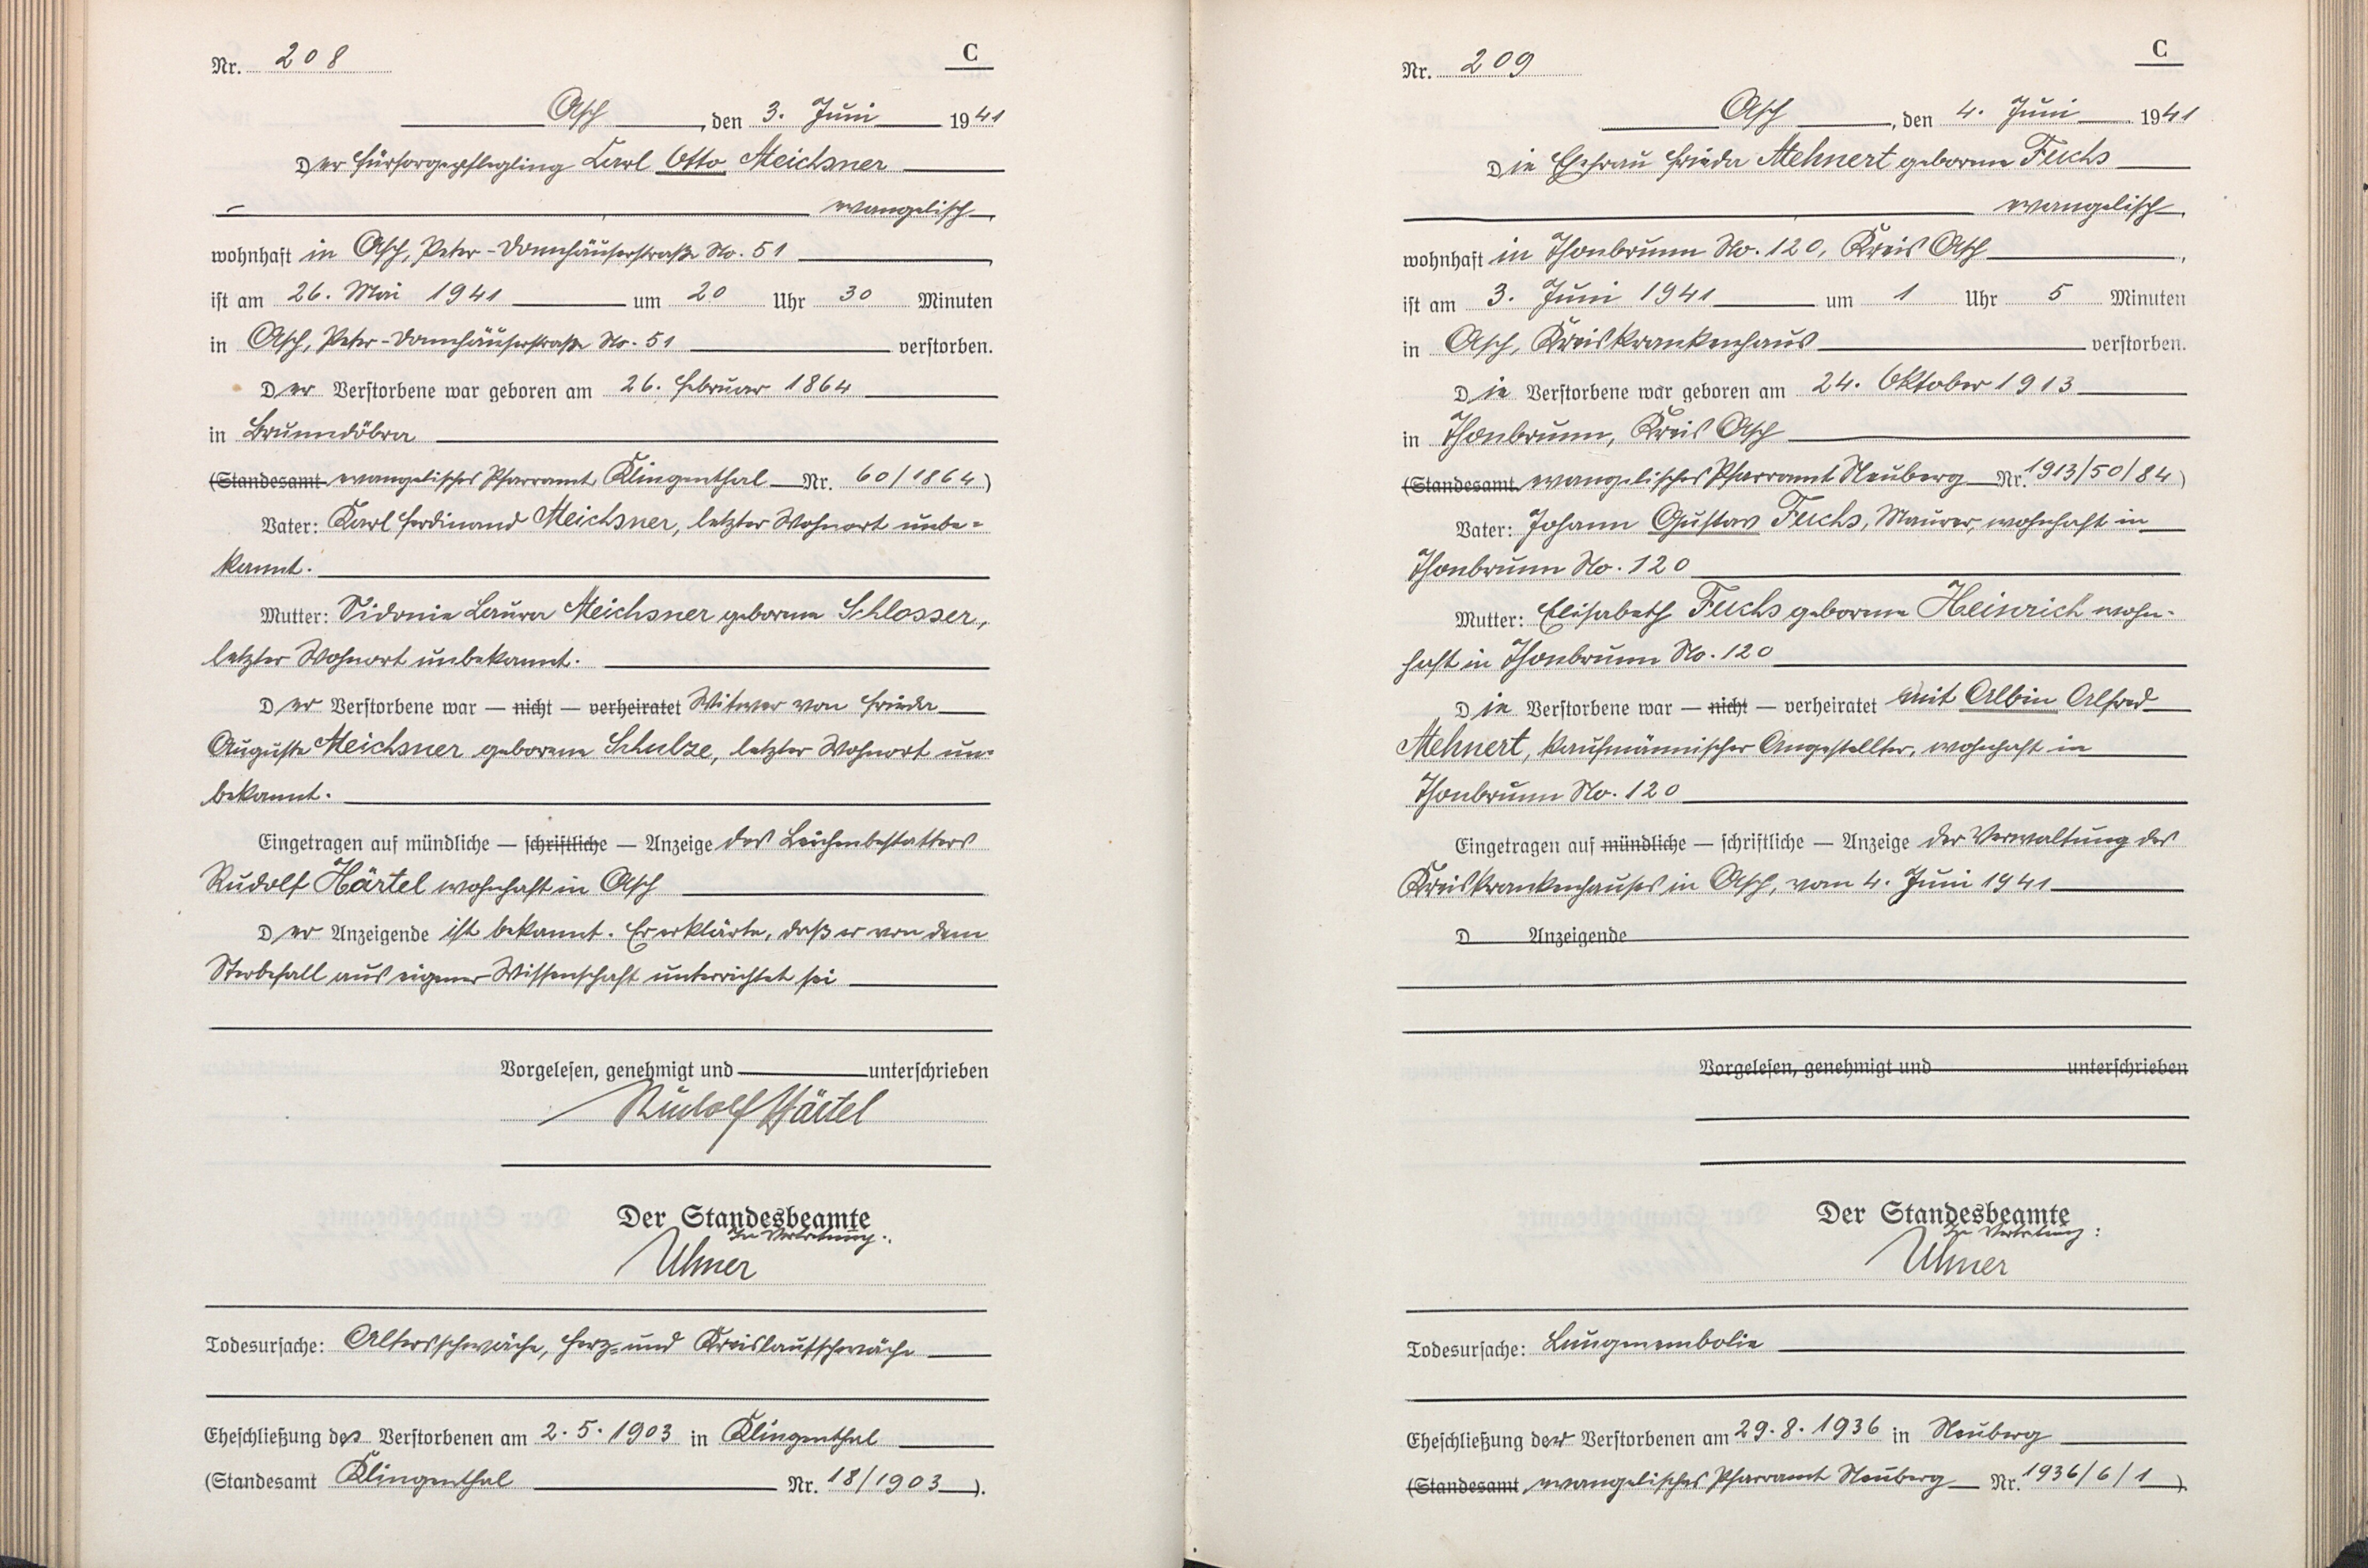 Nr. 208
C
Asch, den 3. Juni 1941
Der Fürsorgepflegling Karl Otto Meichsner
evangelisch,
wohnhaft in Asch, Peter-Donnhäuserstraße No. 51,
ist am 26. Mai 1941 um 20 Uhr 30 Minuten
in Asch, Peter-Donnhäuserstraße No. 51 verstorben.
Der Verstorbene war geboren am 26. Februar 1864
in Brunndöbra
(Standesamt evangelisches Pfarramt Klingenthal Nr. 60/1864)
Vater: Karl Ferdinand Meichsner, letzter Wohnort unbe-
kannt.
Mutter: Sidonie Laura Meichsner geborene Schlosser,
letzter Wohnort unbekannt.
Der Verstorbene war — nicht — verheiratet Witwer von Frieda
Auguste Meichsner geborene Schulze, letzter Wohnort un-
bekannt.
Eingetragen auf mündliche — schriftliche — Anzeige des Leichenbestatters
Rudolf Härtel wohnhaft in Asch
Der Anzeigende ist bekannt. Er erklärte, daß er von dem
Sterbefall aus eigener Wissenschaft unterrichtet sei
Vorgelesen, genehmigt und unterschrieben
Rudolf Härtel
Der Standesbeamte
In Vertretung:
Ulmer
Todesursache: Altersschwäche, Herz- und Kreislaufschwäche
Eheschließung des Verstorbenen am 2.5.1903 in Klingenthal
(Standesamt Klingenthal Nr. 18/1903).
Nr. 209
C
Asch, den 4. Juni 1941
Die Ehefrau Frieda Mehnert geborene Fuchs
evangelisch,
wohnhaft in Thonbrunn No. 120, Kreis Asch,
ist am 3. Juni 1941 um 1 Uhr 5 Minuten
in Asch, Kreiskrankenhaus verstorben.
Die Verstorbene war geboren am 24. Oktober 1913
in Thonbrunn, Kreis Asch
(Standesamt evangelisches Pfarramt Neuberg Nr. 1913/50/84)
Vater: Johann Gustav Fuchs, Maurer, wohnhaft in
Thonbrunn No. 120
Mutter: Elisabeth Fuchs geborene Heinrich wohn-
haft in Thonbrunn No. 120
Die Verstorbene war — nicht — verheiratet mit Albin Alfred
Mehnert, kaufmännischer Angestellter, wohnhaft in
Thonbrunn No. 120
Eingetragen auf mündliche — schriftliche — Anzeige der Verwaltung des
Kreiskrankenhauses in Asch, vom 4. Juni 1941
D Anzeigende
Vorgelesen, genehmigt und unterschrieben
Der Standesbeamte
In Vertretung:
Ulmer
Todesursache: Lungenembolie
Eheschließung der Verstorbenen am 29.8.1936 in Neuberg
(Standesamt evangelisches Pfarramt Neuberg Nr. 1936/6/1)